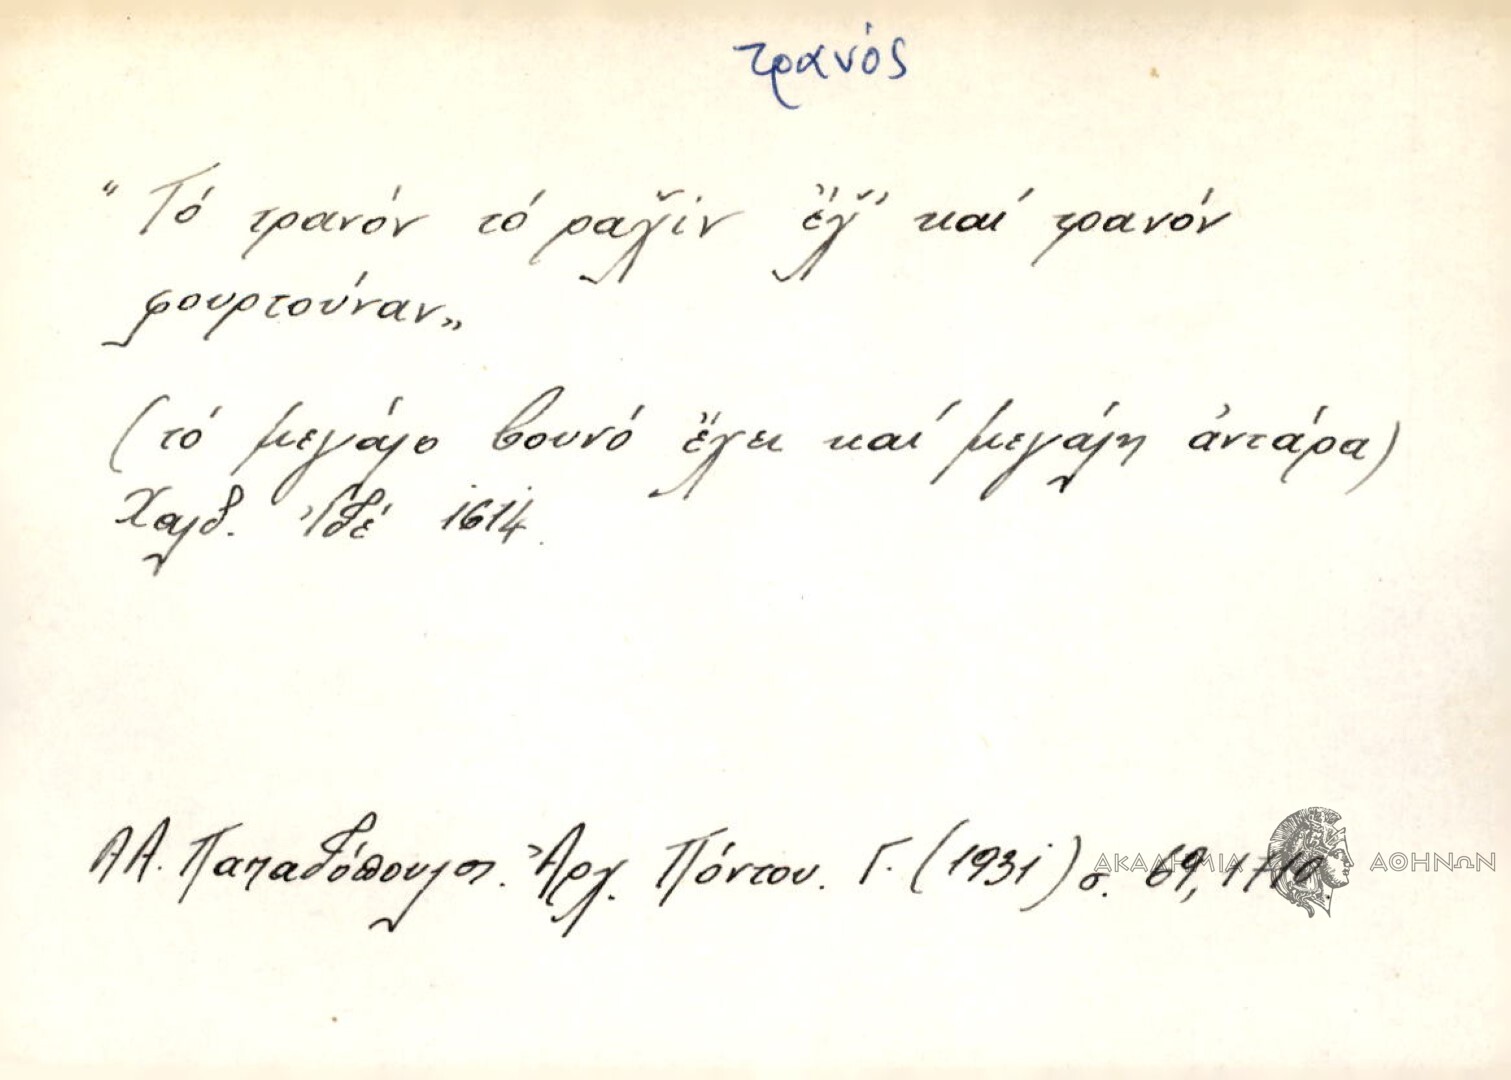 τρανός
"Τό τρανόν τό ραχ̌ίν ἔχ̌' καί τρανόν
φουρτούναν„
(τό μεγάλο βουνό ἔχει καί μεγάλη ἀντάρα)
Χαλδ. Ἰδέ 1614.
ΑΑ. Παπαδόπουλος. Ἀρχ. Πόντου. Γ. (1931) σ. 69, 1710
ΑΚΑΔΗΜΙΑ ΑΘΗΝΩΝ